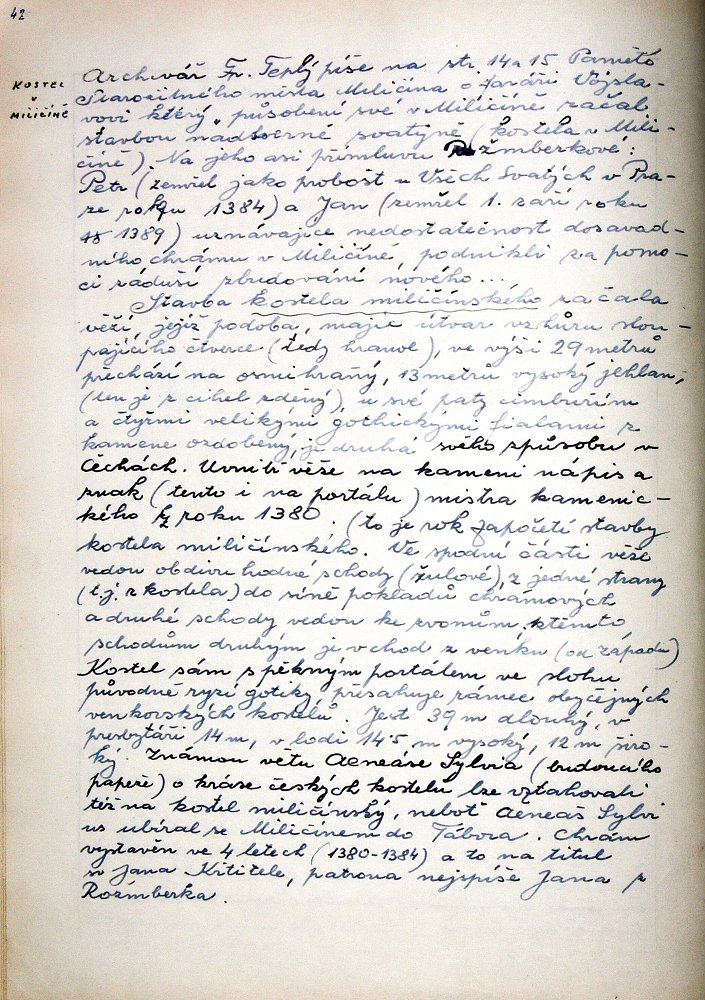 42
KOSTEL
V
MILIČÍNĚ
Archivář Fr. Teplý píše na str. 14 a 15 Pamětí
Starožitného města Miličína o faráři Vojsla-
vovi který „působení své v Miličíně začal
stavbou nádherné svatyně (kostela v Mili-
číně). Na jeho asi přímluvu Rožmberkové:
Petr (zemřel jako probošt u Všech Svatých v Pra-
ze roku 1384) a Jan (zemřel 1. září roku
1389) uznávajíce nedostatečnost dosavad-
ního chrámu v Miličíně, podnikli za pomo-
ci zbudování nového...
Stavba kostela miličínského začala
věží, jejíž podoba, majíc útvar vzhůru stou-
pajícího čtverce (tedy hranol), ve výši 29 metrů
přechází na osmihraný, 13 metrů vysoký jehlan,
(ten je z cihel zděný) u své paty cimbuřím
a čtyřmi velikými gothickými fialami z
kamene ozdobený, je druhá svého způsobu v
Čechách. Uvnitř věže na kameni nápis a
znak (tento i na portálu) mistra kamenic-
kého z roku 1380. (to je rok započetí stavby
kostela miličínského. Ve spodní části věže
vedou obdivuhodné schody (žulové), z jedné strany
(t.j. z kostela) do síně pokladů chrámových
a druhé schody vedou ke zvonům, k těmto
schodům druhým je vchod z venku (od západu)
Kostel sám s pěkným portálem ve slohu
původně ryzí gotiky, přesahuje rámec obyčejných
venkovských kostelů. Jest 39 m dlouhý, v
presbytáři 14 m, v lodi 14·5 m vysoký, 12 m širo-
ký. Známou větu Aeneáše Sylvia (budoucího
papeže) o kráse českých kostelů lze vztahovati
též na kostel miličínský, neboť Aeneáš Sylvi
us ubíral se Miličínem do Tábora. Chrám
vystavěn ve 4 letech (1380-1384) a to na titul
sv Jana Křtitele, patrona nejspíše Jana z
Rožmberka.